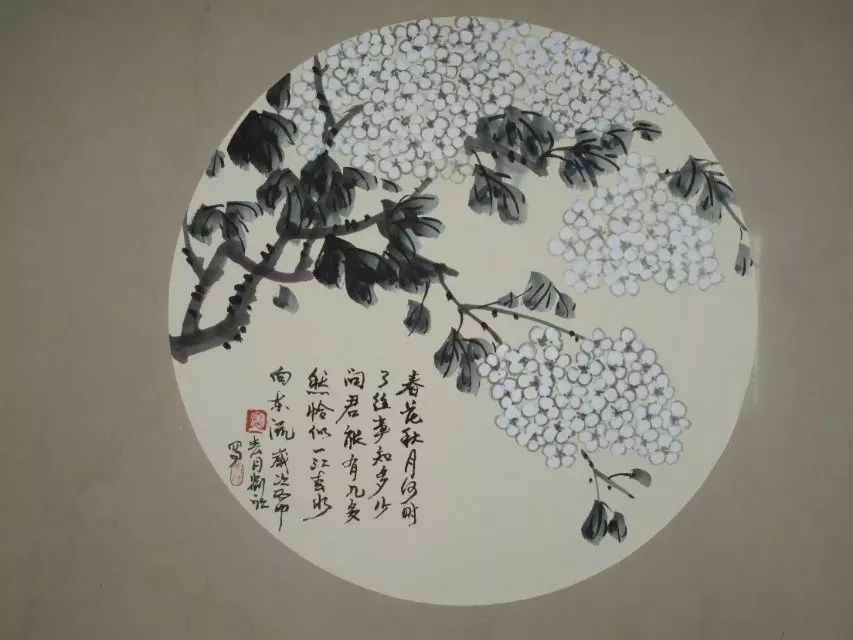 春花秋月何时
了往事知多少
问君能有几多
愁恰似一江春水
向东流 岁次丙申
春月
写